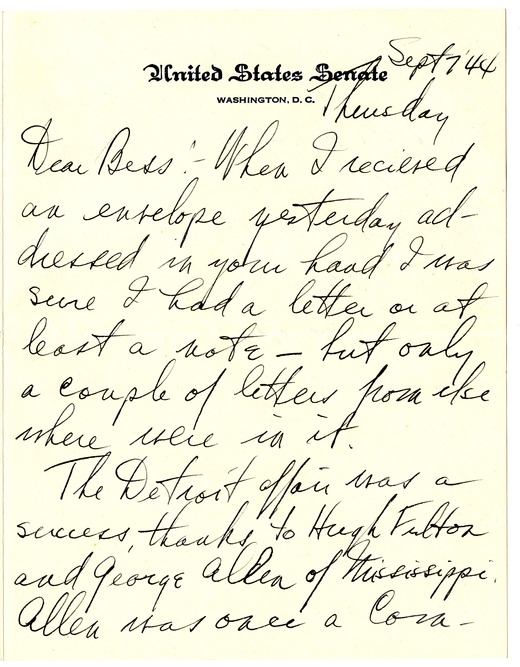 United States Senate
WASHINGTON, D. C.
Sept 7 '44
Thursday
Dear Bess:- When I recieved
an envelope yesterday ad-
dressed in your hand I was
sure I had a letter or at
least a note – but only
a couple of letters from else
where were in it.
The Detroit affair was a
success, thanks to Hugh Fulton
and George Allen of Mississippi.
Allen was once a Com-